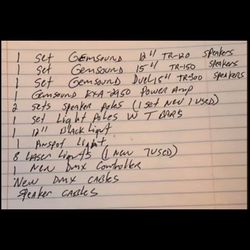 1 Set GEMSOUND 12" TR-120 Speakers
1 Set Gemsound 15" TR-150 Speakers
1 Set Gemsound Duel 15" TR-300 Speakers
1 Gemsound EXA-2450 Power Amp
2 Sets Speaker Poles (1 Set New 1 Used)
1 Set Light Poles w T BARS
1 12" Black Light
1 Pinspot Light
8 LASER Lights (1 New 7 Used)
1 New DMX Controller
New DMX CABLES
Speaker CABLES